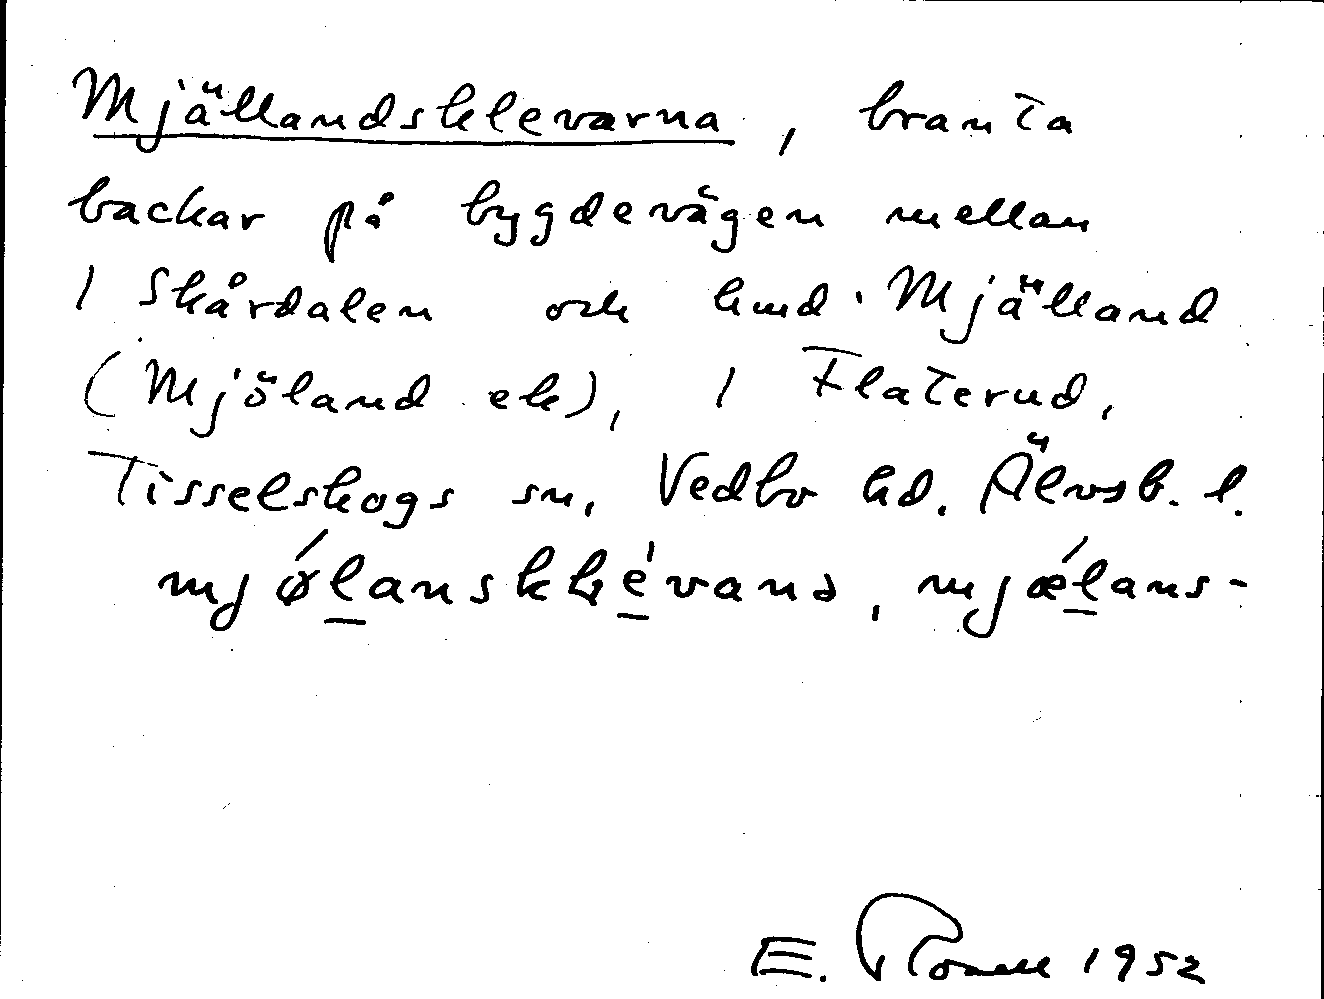 Mjällandsklevarna, branta
backar på bygdevägen mellan
1 Skårdalen och hmd. Mjälland
(Mjöland ek), 1 Flaterud,
Tisselskogs sn, Vedbo hd. Älvsb. l.
mjǿlansklévanə, mjǽlans-
E. 1952